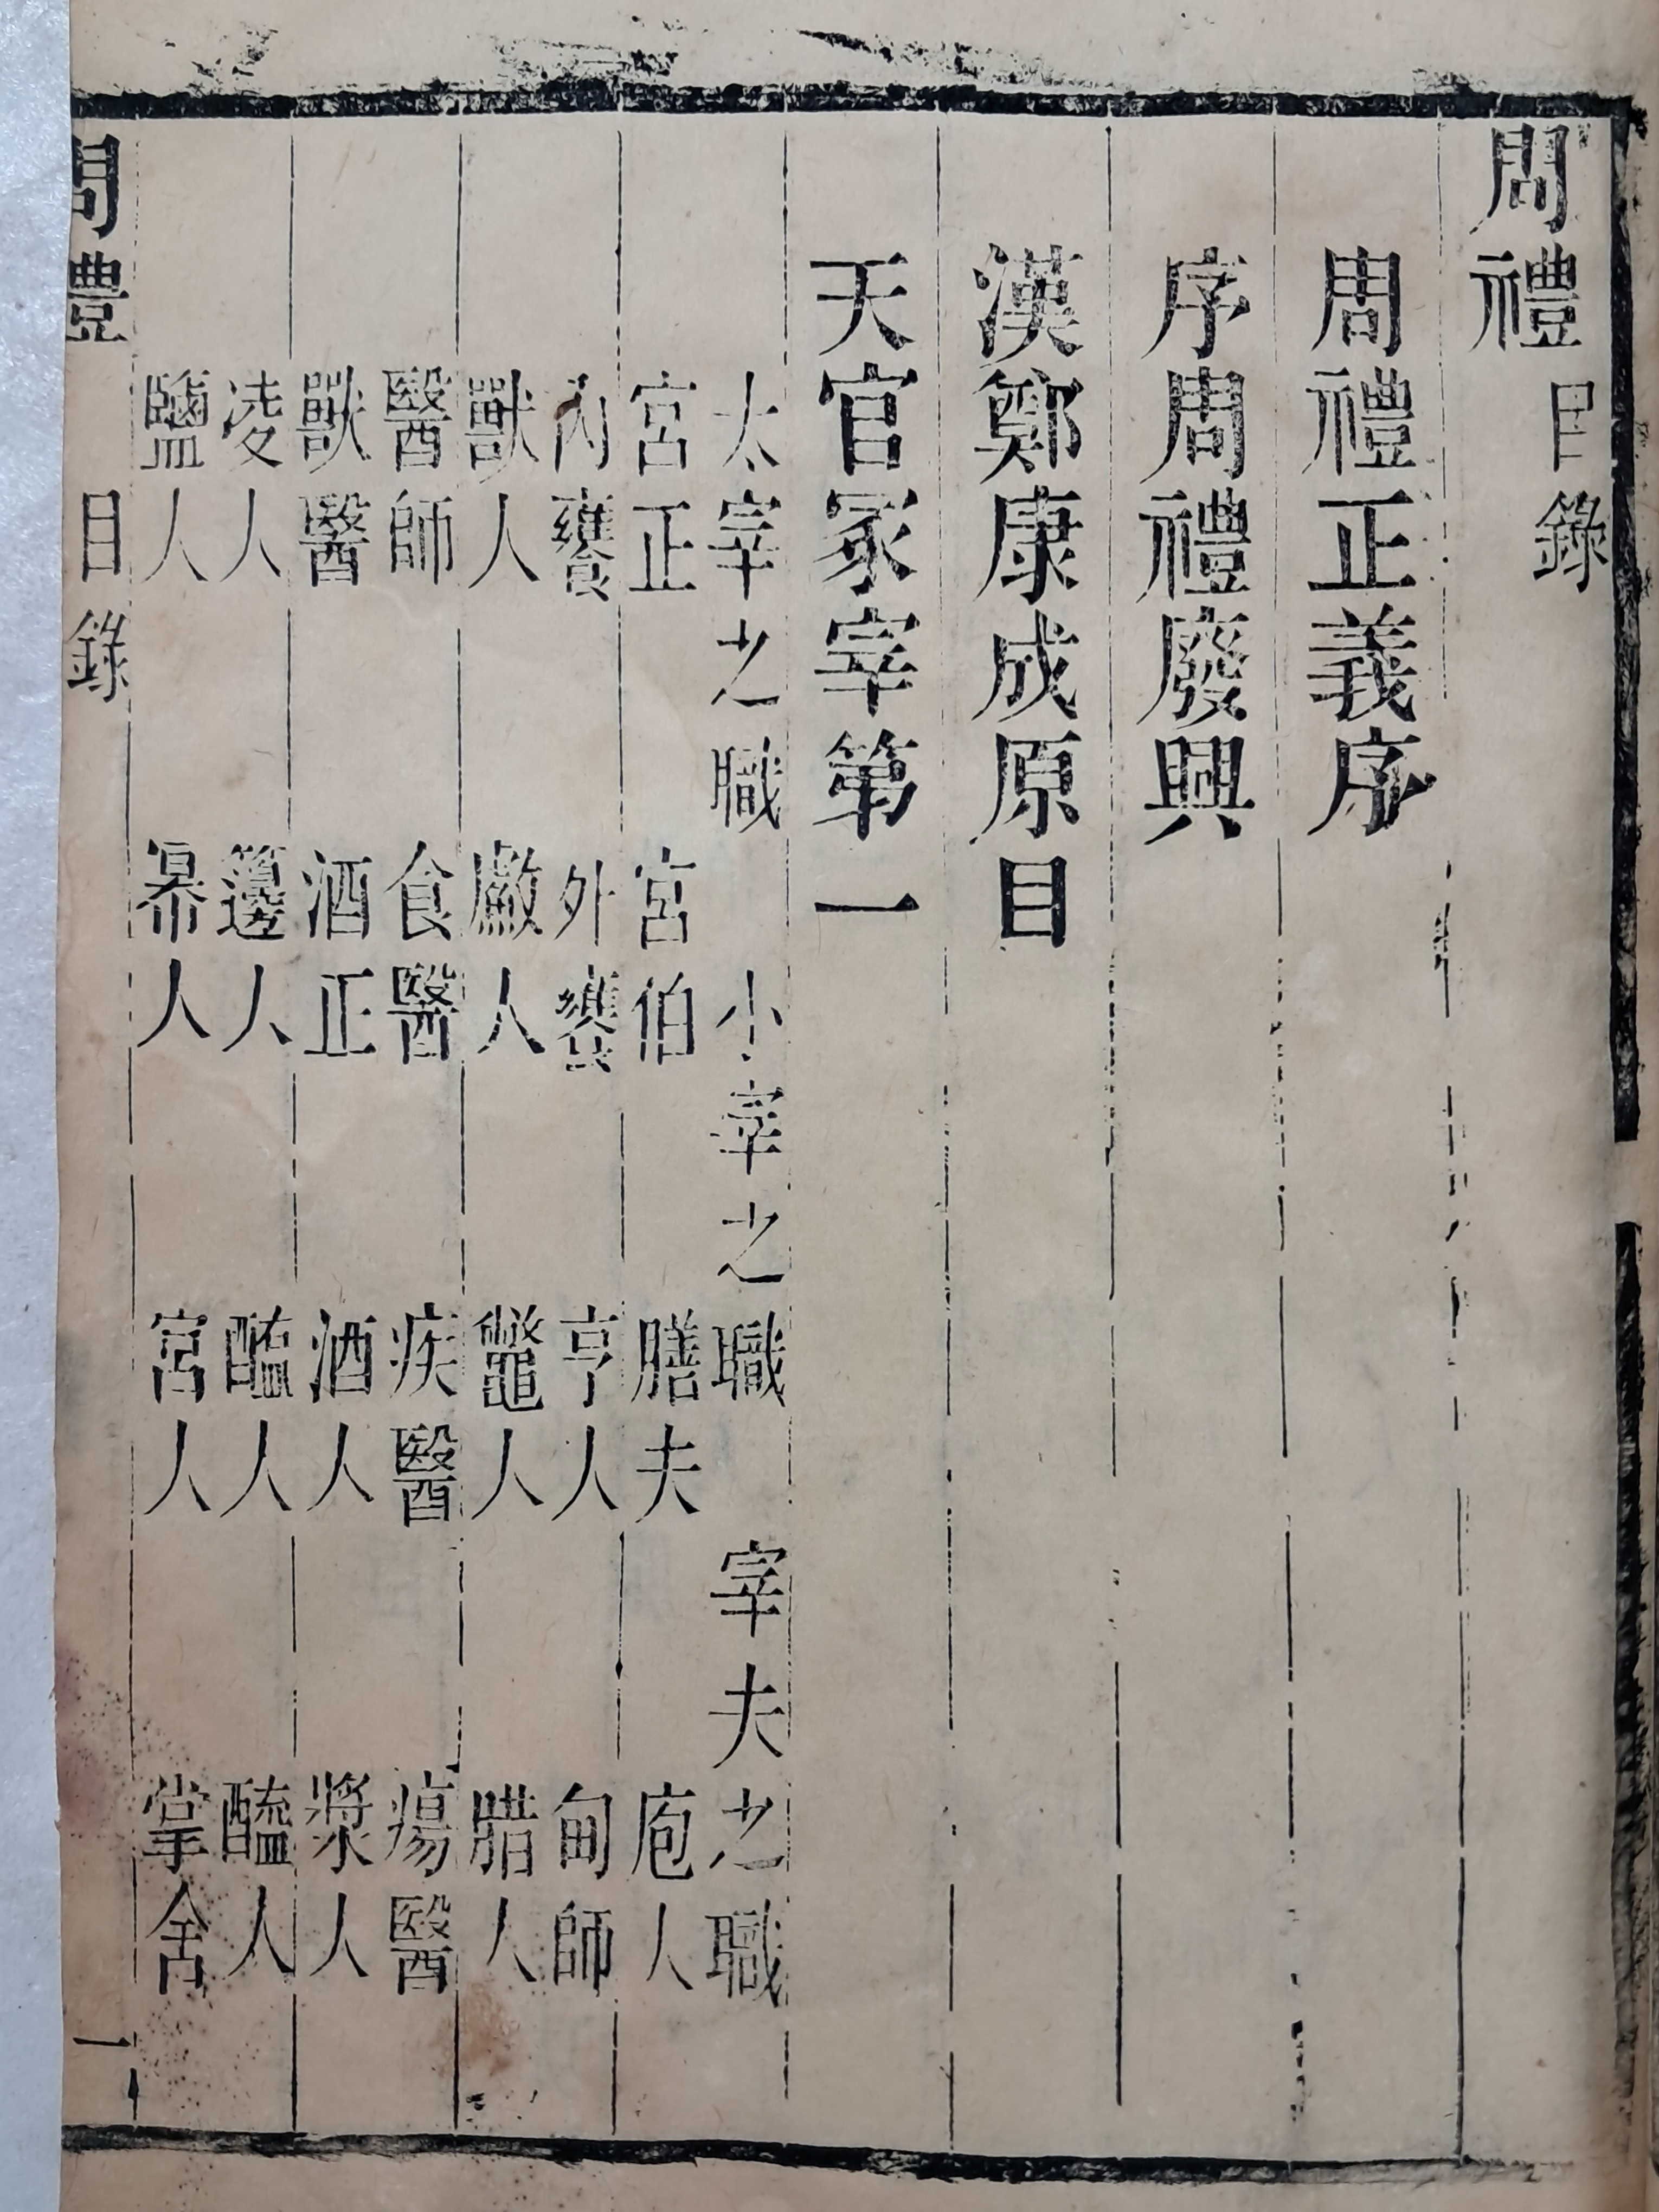 周禮目錄
周禮正義序
序周禮廢興
漢鄭康成原目
天官冢宰第一
太宰之職 小宰之職 宰夫之職
宮正 宮伯 膳夫 庖人
內饔 外饔 亨人 甸師
獸人 䱷人 鼈人 腊人
醫師 食醫 疾醫 瘍醫
獸醫 酒正 酒人 漿人
凌人 籩人 醢人 醯人
鹽人 冪人 宮人 掌舍
周禮 目錄 一